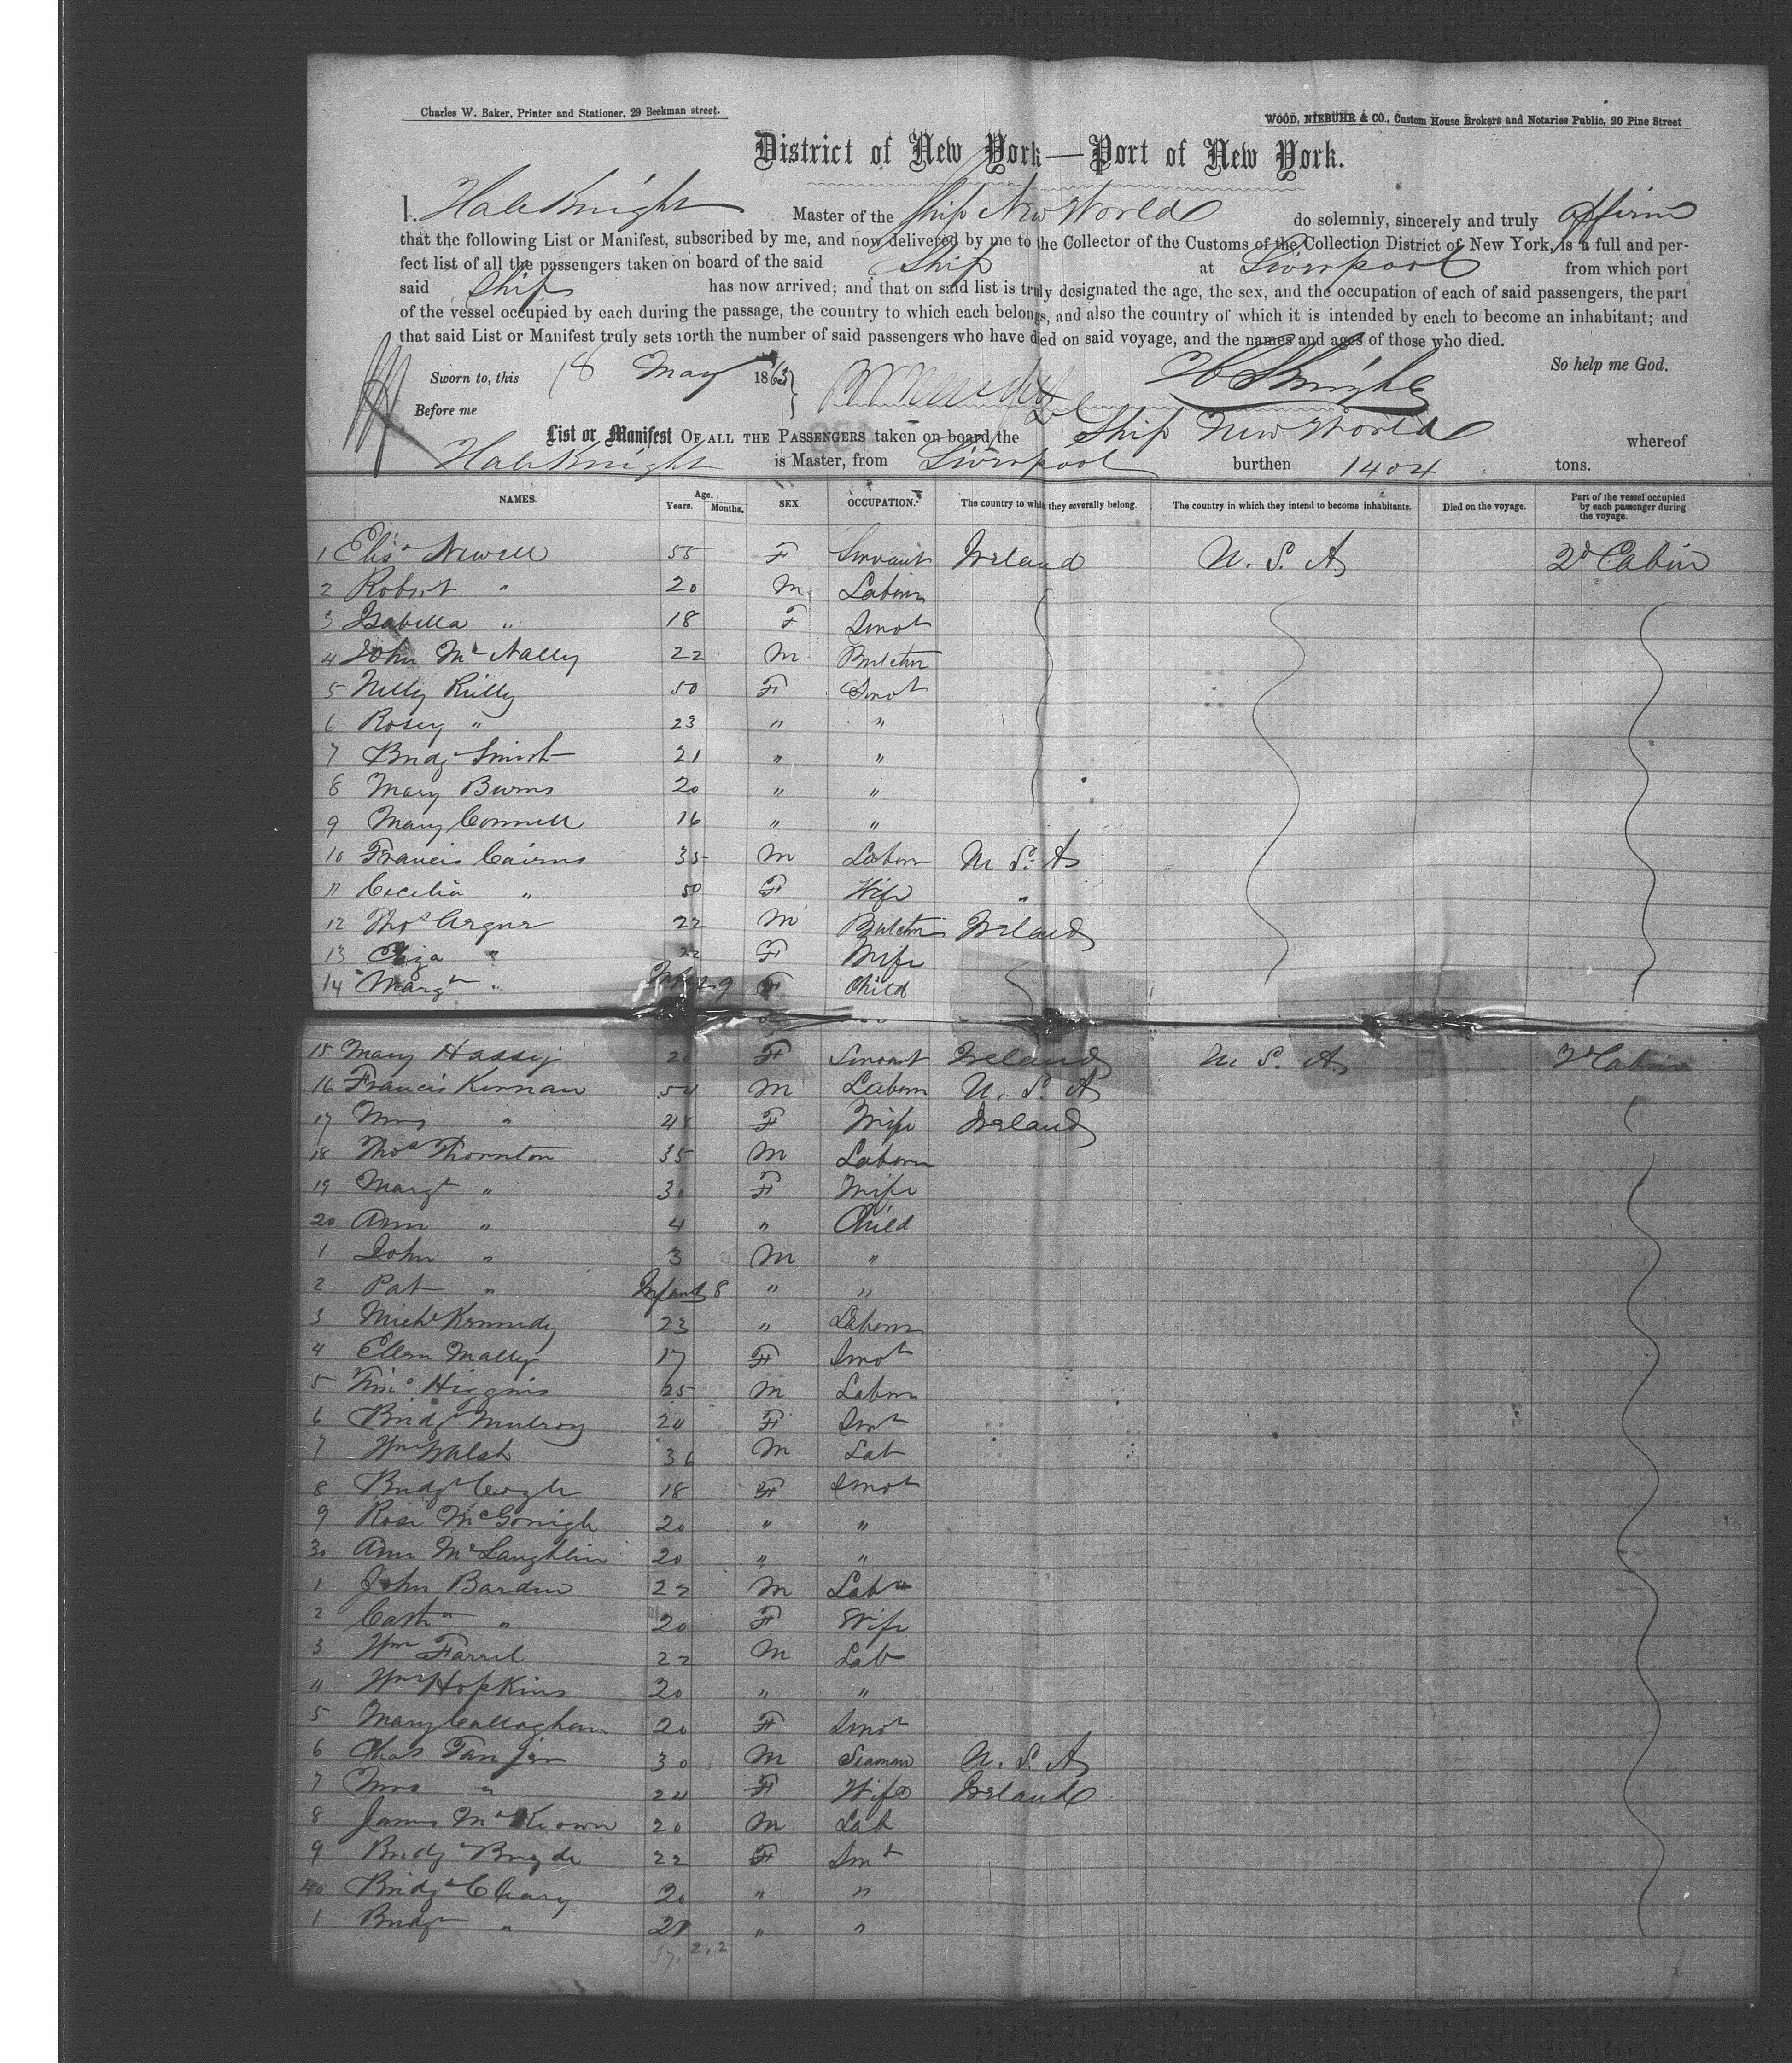 Charles W. Baker, Printer and Stationer, 29 Beekman street.
WOOD, NIEBUHR & CO., Custom House Brokers and Notaries Public, 20 Pine Street
District of New York—Port of New York.
I. Hale Knight Master of the Ship New World do solemnly, sincerely and truly affirm
that the following List or Manifest, subscribed by me, and now delivered by me to the Collector of the Customs of the Collection District of New York, is a full and per-
fect list of all the passengers taken on board of the said Ship at Liverpool from which port
said Ship has now arrived; and that on said list is truly designated the age, the sex, and the occupation of each of said passengers, the part
of the vessel occupied by each during the passage, the country to which each belongs, and also the country of which it is intended by each to become an inhabitant; and
that said List or Manifest truly sets forth the number of said passengers who have died on said voyage, and the names and ages of those who died.
So help me God.
Sworn to, this 18 May 1863 H Knight
Before me
List or Manifest OF ALL THE PASSENGERS taken on board the Ship New World whereof
Hale Knight is Master, from Liverpool burthen 1404 tons.
NAMES. Age. Years. Months. SEX. OCCUPATION. The country to which they severally belong. The country in which they intend to become inhabitants. Died on the voyage. Part of the vessel occupied by each passenger during the voyage.
1 Elis.a Newell 55 F Servant Ireland U. S. A 2d Cabin
2 Robert " 20 M Laborer
3 Isabella " 18 F Servt
4 John McNally 22 M Butcher
5 Nelly Reilly 50 F Servt
6 Rosey " 23 " "
7 Bridgt Smith 21 " "
8 Mary Burns 20 " "
9 Mary Connell 16 " "
10 Francis Cairns 35 M Laborer U. S. A
11 Cecelia " 50 F Wife "
12 Thos 22 M Butcher Ireland
13 Eliza " 22 F Wife
14 Margt " Infant 9 F Child
15 Mary Hassey 20 F Servant Ireland U. S. A. 2d Cabin
16 Francis Kernan M Laborer U. S. A
17 Mrs " F Wife Ireland
18 Thos Thornton 35 M Laborer
19 Margt " 30 F Wife
20 Ann " 4 " Child
1 John " 3 M "
2 Pat " Infant 8 " "
3 Michl Kennedy 23 " Laborer
4 Ellen Mally 17 F Servt
5 Timo Higgins 25 M Laborer
6 Bridgt Mulroy 20 F Servt
7 Wm Walsh 36 M Lab
8 Bridgt 18 F Servt
9 Rose McGonigle 20 " "
30 Ann McLaughlin 20 " "
1 John Barden 22 M Labr
2 Cathn " 20 F Wife
3 Wm Farrel 22 M Lab
4 Wm Hopkins 20 " "
5 Mary Callaghan 20 F Servt
6 Chas 30 M Seaman U. S. A
7 Mrs " F Wife Ireland
8 James McKeown 20 M Lab
9 Bridgt 22 F Servt
40 Bridgt Cleary 20 " "
1 Bridgt " " "
37. 2. 2